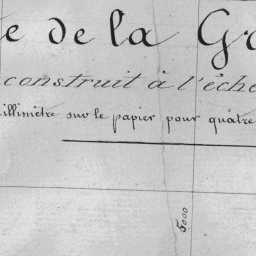 e de la Gr
construit à l'éche
illimètre sur le papier pour quatre
5000